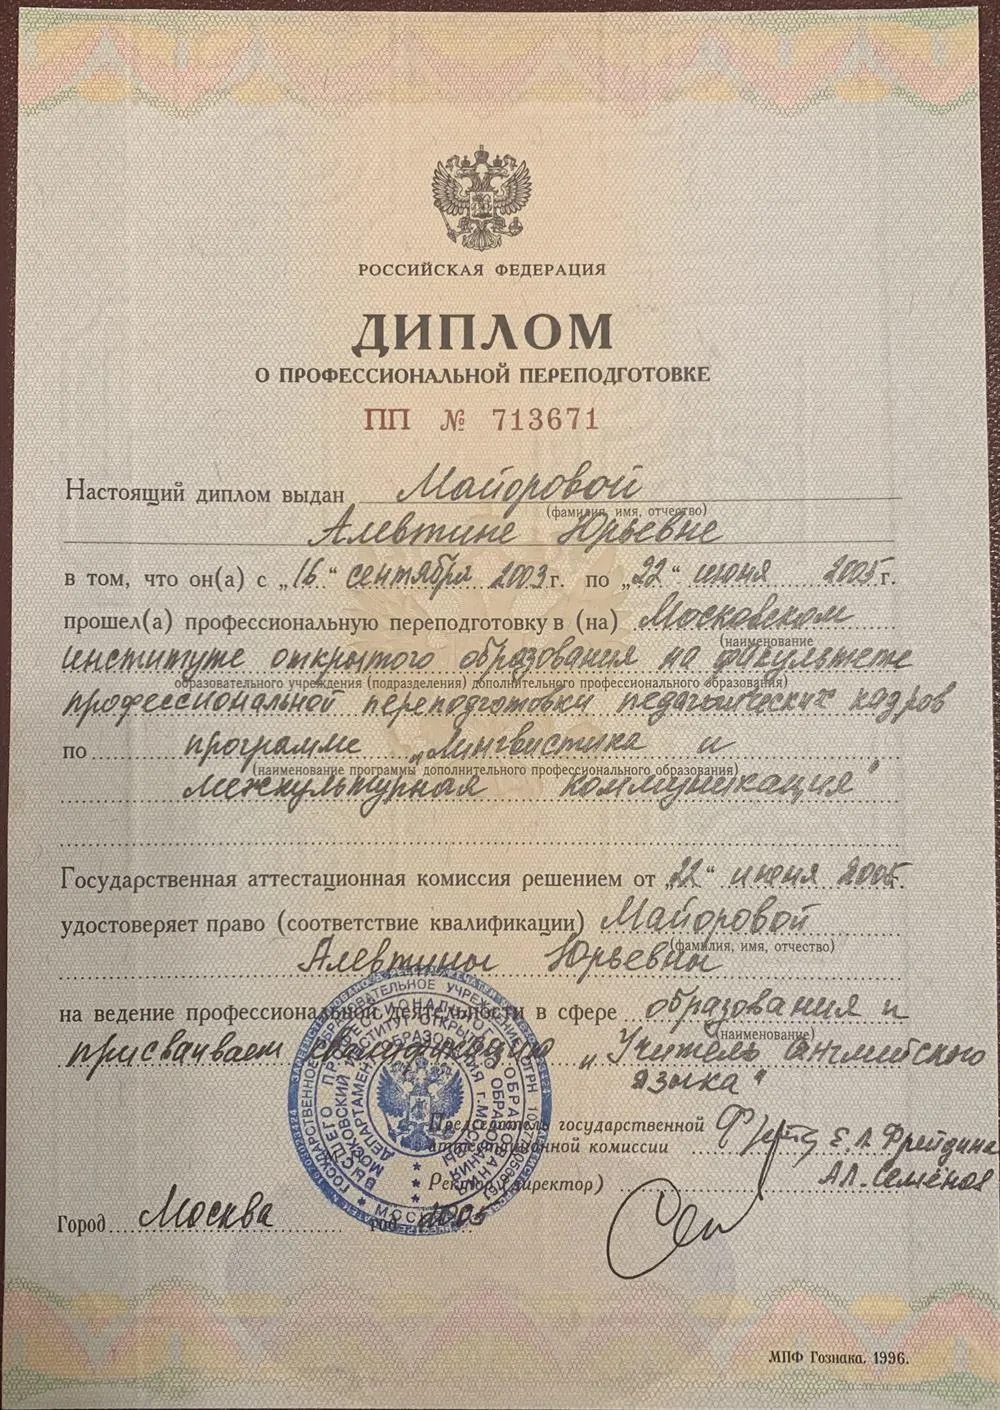 РОССИЙСКАЯ ФЕДЕРАЦИЯ
ДИПЛОМ
О ПРОФЕССИОНАЛЬНОЙ ПЕРЕПОДГОТОВКЕ
ПП № 713671
Настоящий диплом выдан Майоровой
(фамилия, имя, отчество)
Алевтине Юрьевне
в том, что он(а) с „16“ сентября 2003г. по „22“ июня 2005г.
прошел(а) профессиональную переподготовку в (на) Московском
(наименование
институте открытого образования на факультете
образовательного учреждения (подразделения) дополнительного профессионального образования)
профессиональной переподготовки педагогических кадров
по программе „Лингвистика и
(наименование программы дополнительного профессионального образования)
межкультурная коммуникация"
Государственная аттестационная комиссия решением от „22“ июня 2005г.
удостоверяет право (соответствие квалификации) Майоровой
(фамилия, имя, отчество)
Алевтины Юрьевны
на ведение профессиональной деятельности в сфере образования и
(наименование)
присваивает квалификацию „Учитель английского
языка"
Председатель государственной
аттестационной комиссии Е.Л. Фрейдина
А.Л. Семёнов
Ректор (директор)
Город Москва год 2005
МПФ Гознака. 1996.